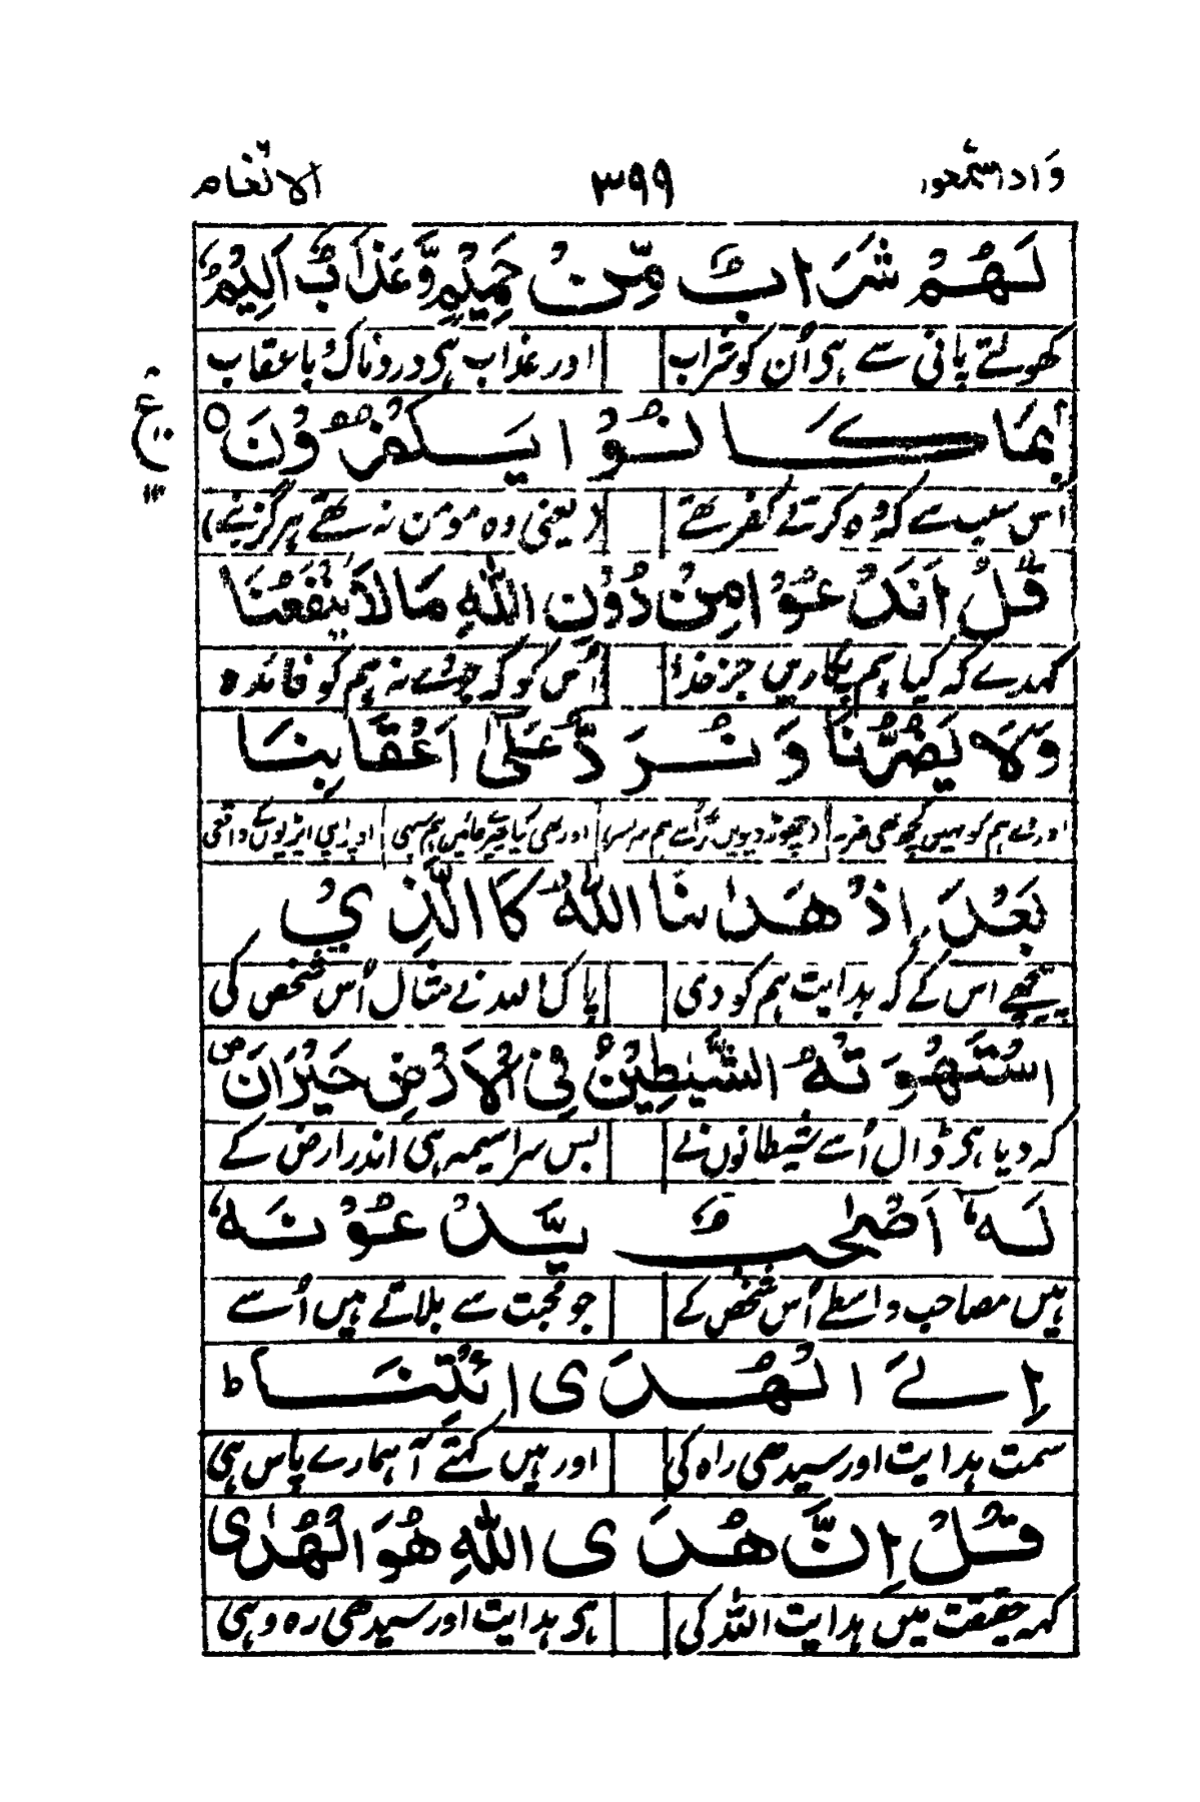 واذا سمعوا ۳۹۹ الانعام ۶
لَهُمْ شَرَابٌ مِّنْ حَمِيْمٍ وَّعَذَابٌ اَلِيْمٌۢ
کھولتے پانی سے ہی اُن کو شراب اور عذاب ہی دردناک با عقاب
بِمَا كَانُوْا يَكْفُرُوْنَ ۠
اس سبب سے کہ وُہ کرتے کفر تھے (یعنی وہ مومن نہ تھے ہرگز بنے)
ع
قُلْ اَنَدْعُوْا مِنْ دُوْنِ اللّٰهِ مَا لَا يَنْفَعُنَا
کہدے کہ کیا ہم پکاریں جز خدا اُس کو کہ جو دے نہ ہم کو فائدہ
وَلَا يَضُرُّنَا وَنُرَدُّ عَلٰٓى اَعْقَابِنَا
اور نے ہم کو کچھ بھی ضرر اور بھی کیا پھیرے جائیں ہم سبھی اوپر اپنی ایڑیوں کے واقعی
بَعْدَ اِذْ هَدٰىنَا اللّٰهُ كَالَّذِي
پیچھے اس کے کہ ہدایت ہم کو دی پاک اللہ نے مثال اُس شخص کی
اسْتَهْوَتْهُ الشَّيٰطِيْنُ فِي الْاَرْضِ حَيْرَانَ ص
کہ دیا ہی ڈال اُسے شیطانوں نے بس سراسیمہ ہی اندر ارض کے
لَهٗٓ اَصْحٰبٌ يَّدْعُوْنَهٗٓ
ہیں مصاحب واسطے اُس شخص کے جو محبت سے بلاتے ہیں اُسے
اِلَے الْهُدَى ائْتِنَا ط
سمت ہدایت اور سیدھی راہ کی اور ہیں کہتے آ ہمارے پاس ہی
قُلْ اِنَّ هُدَى اللّٰهِ هُوَ الْهُدٰى
کہہ حقیقت میں ہدایت اللہ کی ہی ہدایت اور سیدھی رہ وہی